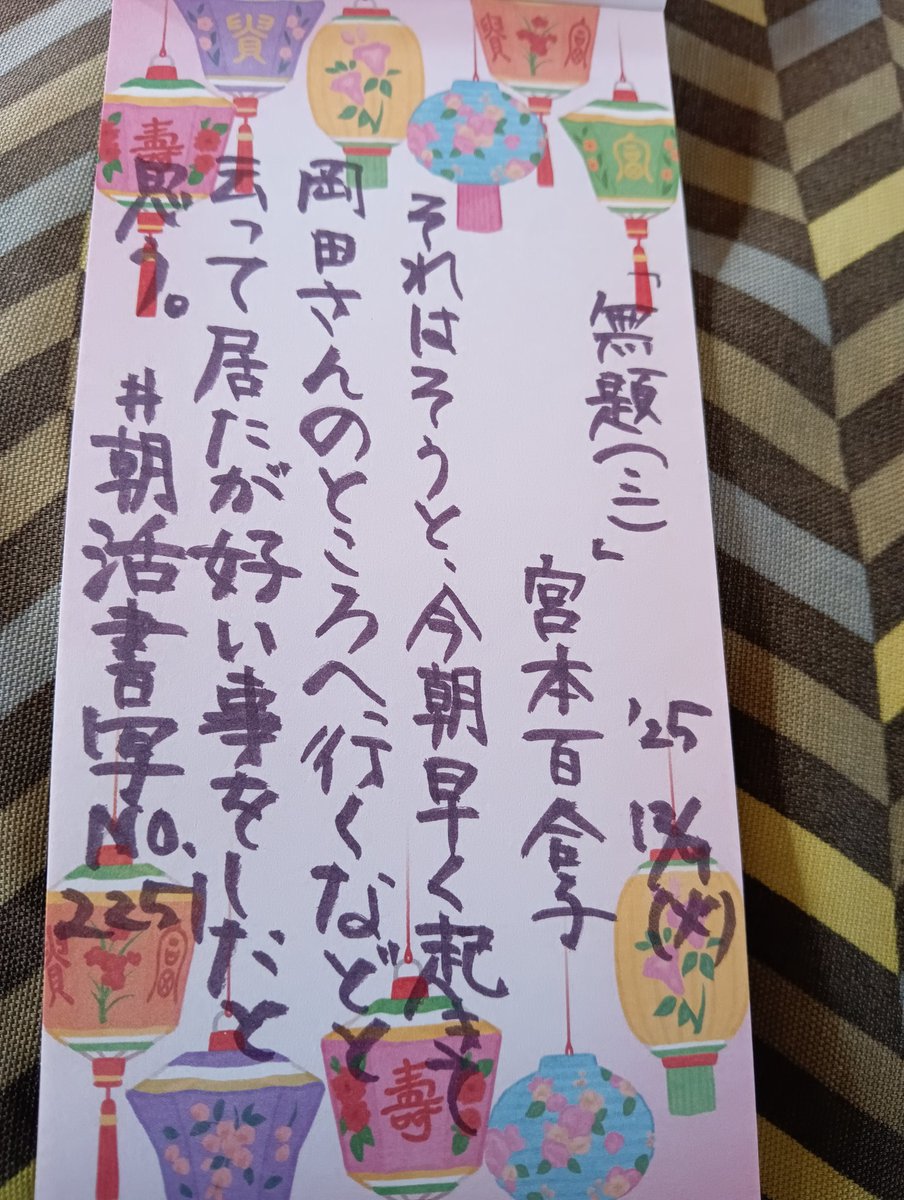 '25 12/9(火)
「無題(三)」
宮本百合子
それはそうと、今朝早く起きて
岡田さんのところへ行くなどと
云って居たが好い事をしたと
思う。 #朝活書写 No.225
壽
壽